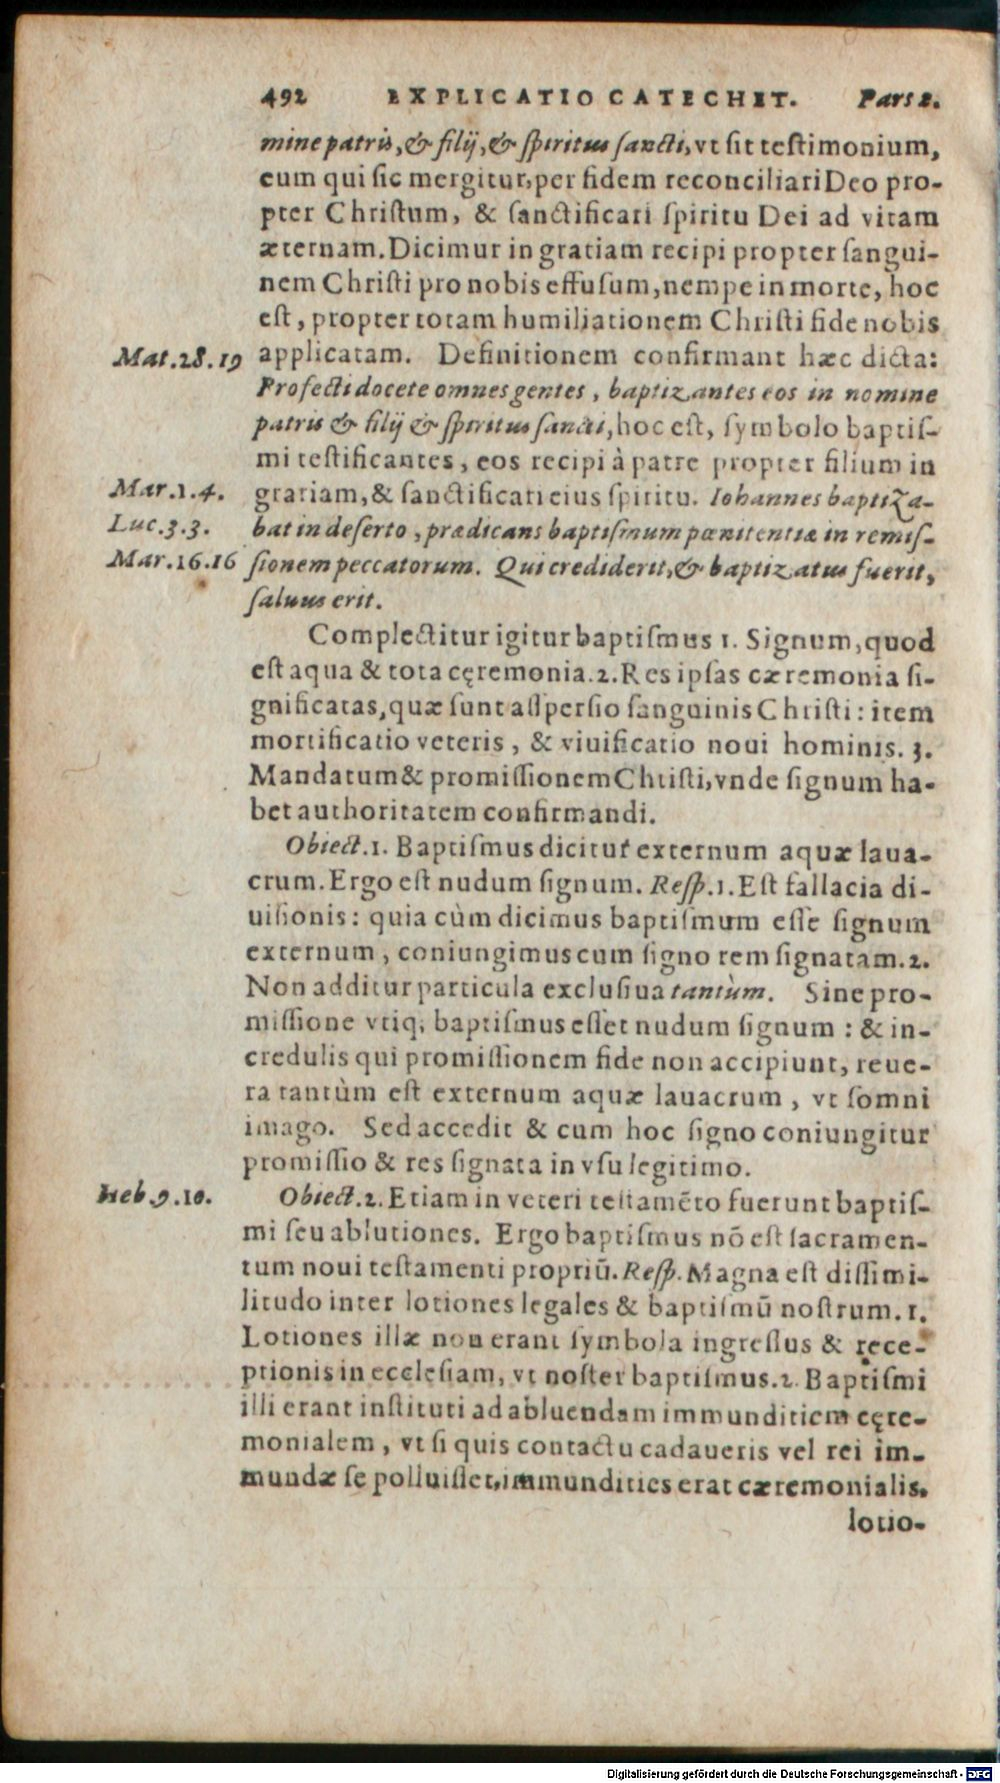 492 EXPLICATIO CATECHET. Pars 2.
mine patris, & filij, & spiritus sancti, vt sit testimonium,
eum qui sic mergitur, per fidem reconciliari Deo pro-
pter Christum, & sanctificari spiritu Dei ad vitam
æternam. Dicimur in gratiam recipi propter sangui-
nem Christi pro nobis effusum, nempe in morte, hoc
est, propter totam humiliationem Christi fide nobis
Mat. 28. 19 applicatam. Definitionem confirmant hæc dicta:
Profecti docete omnes gentes, baptizantes eos in nomine
patris & filij & spiritus sancti, hoc est, symbolo baptis-
mi testificantes, eos recipi à patre propter filium in
Mar. 1. 4. gratiam, & sanctificari eius spiritu. Iohannes baptiza-
Luc. 3. 3. bat in deserto, prædicans baptismum pœnitentiæ in remis-
Mar. 16. 16 sionem peccatorum. Qui crediderit, & baptizatus fuerit,
saluus erit.
Complectitur igitur baptismus 1. Signum, quod
est aqua & tota cęremonia. 2. Res ipsas cæremonia si-
gnificatas, quæ sunt aspersio sanguinis Christi: item
mortificatio veteris, & viuificatio noui hominis. 3.
Mandatum & promissionem Christi, vnde signum ha-
bet authoritatem confirmandi.
Obiect. 1. Baptismus dicitur externum aquæ laua-
crum. Ergo est nudum signum. Resp. 1. Est fallacia di-
uisionis: quia cùm dicimus baptismum esse signum
externum, coniungimus cum signo rem signatam. 2.
Non additur particula exclusiua tantùm. Sine pro-
missione vtiq; baptismus esset nudum signum: & in-
credulis qui promissionem fide non accipiunt, reue-
ra tantùm est externum aquæ lauacrum, vt somni
imago. Sed accedit & cum hoc signo coniungitur
promissio & res signata in vsu legitimo.
Heb. 9. 10. Obiect. 2. Etiam in veteri testamẽto fuerunt baptis-
mi seu ablutiones. Ergo baptismus nõ est sacramen-
tum noui testamenti propriũ. Resp. Magna est dissimi-
litudo inter lotiones legales & baptismũ nostrum. 1.
Lotiones illæ non erant symbola ingressus & rece-
ptionis in ecclesiam, vt noster baptismus. 2. Baptismi
illi erant instituti ad abluendam immunditiem cęre-
monialem, vt si quis contactu cadaueris vel rei im-
mundæ se polluisset, immundities erat cæremonialis.
lotio-
Digitalisierung gefördert durch die Deutsche Forschungsgemeinschaft - DFG